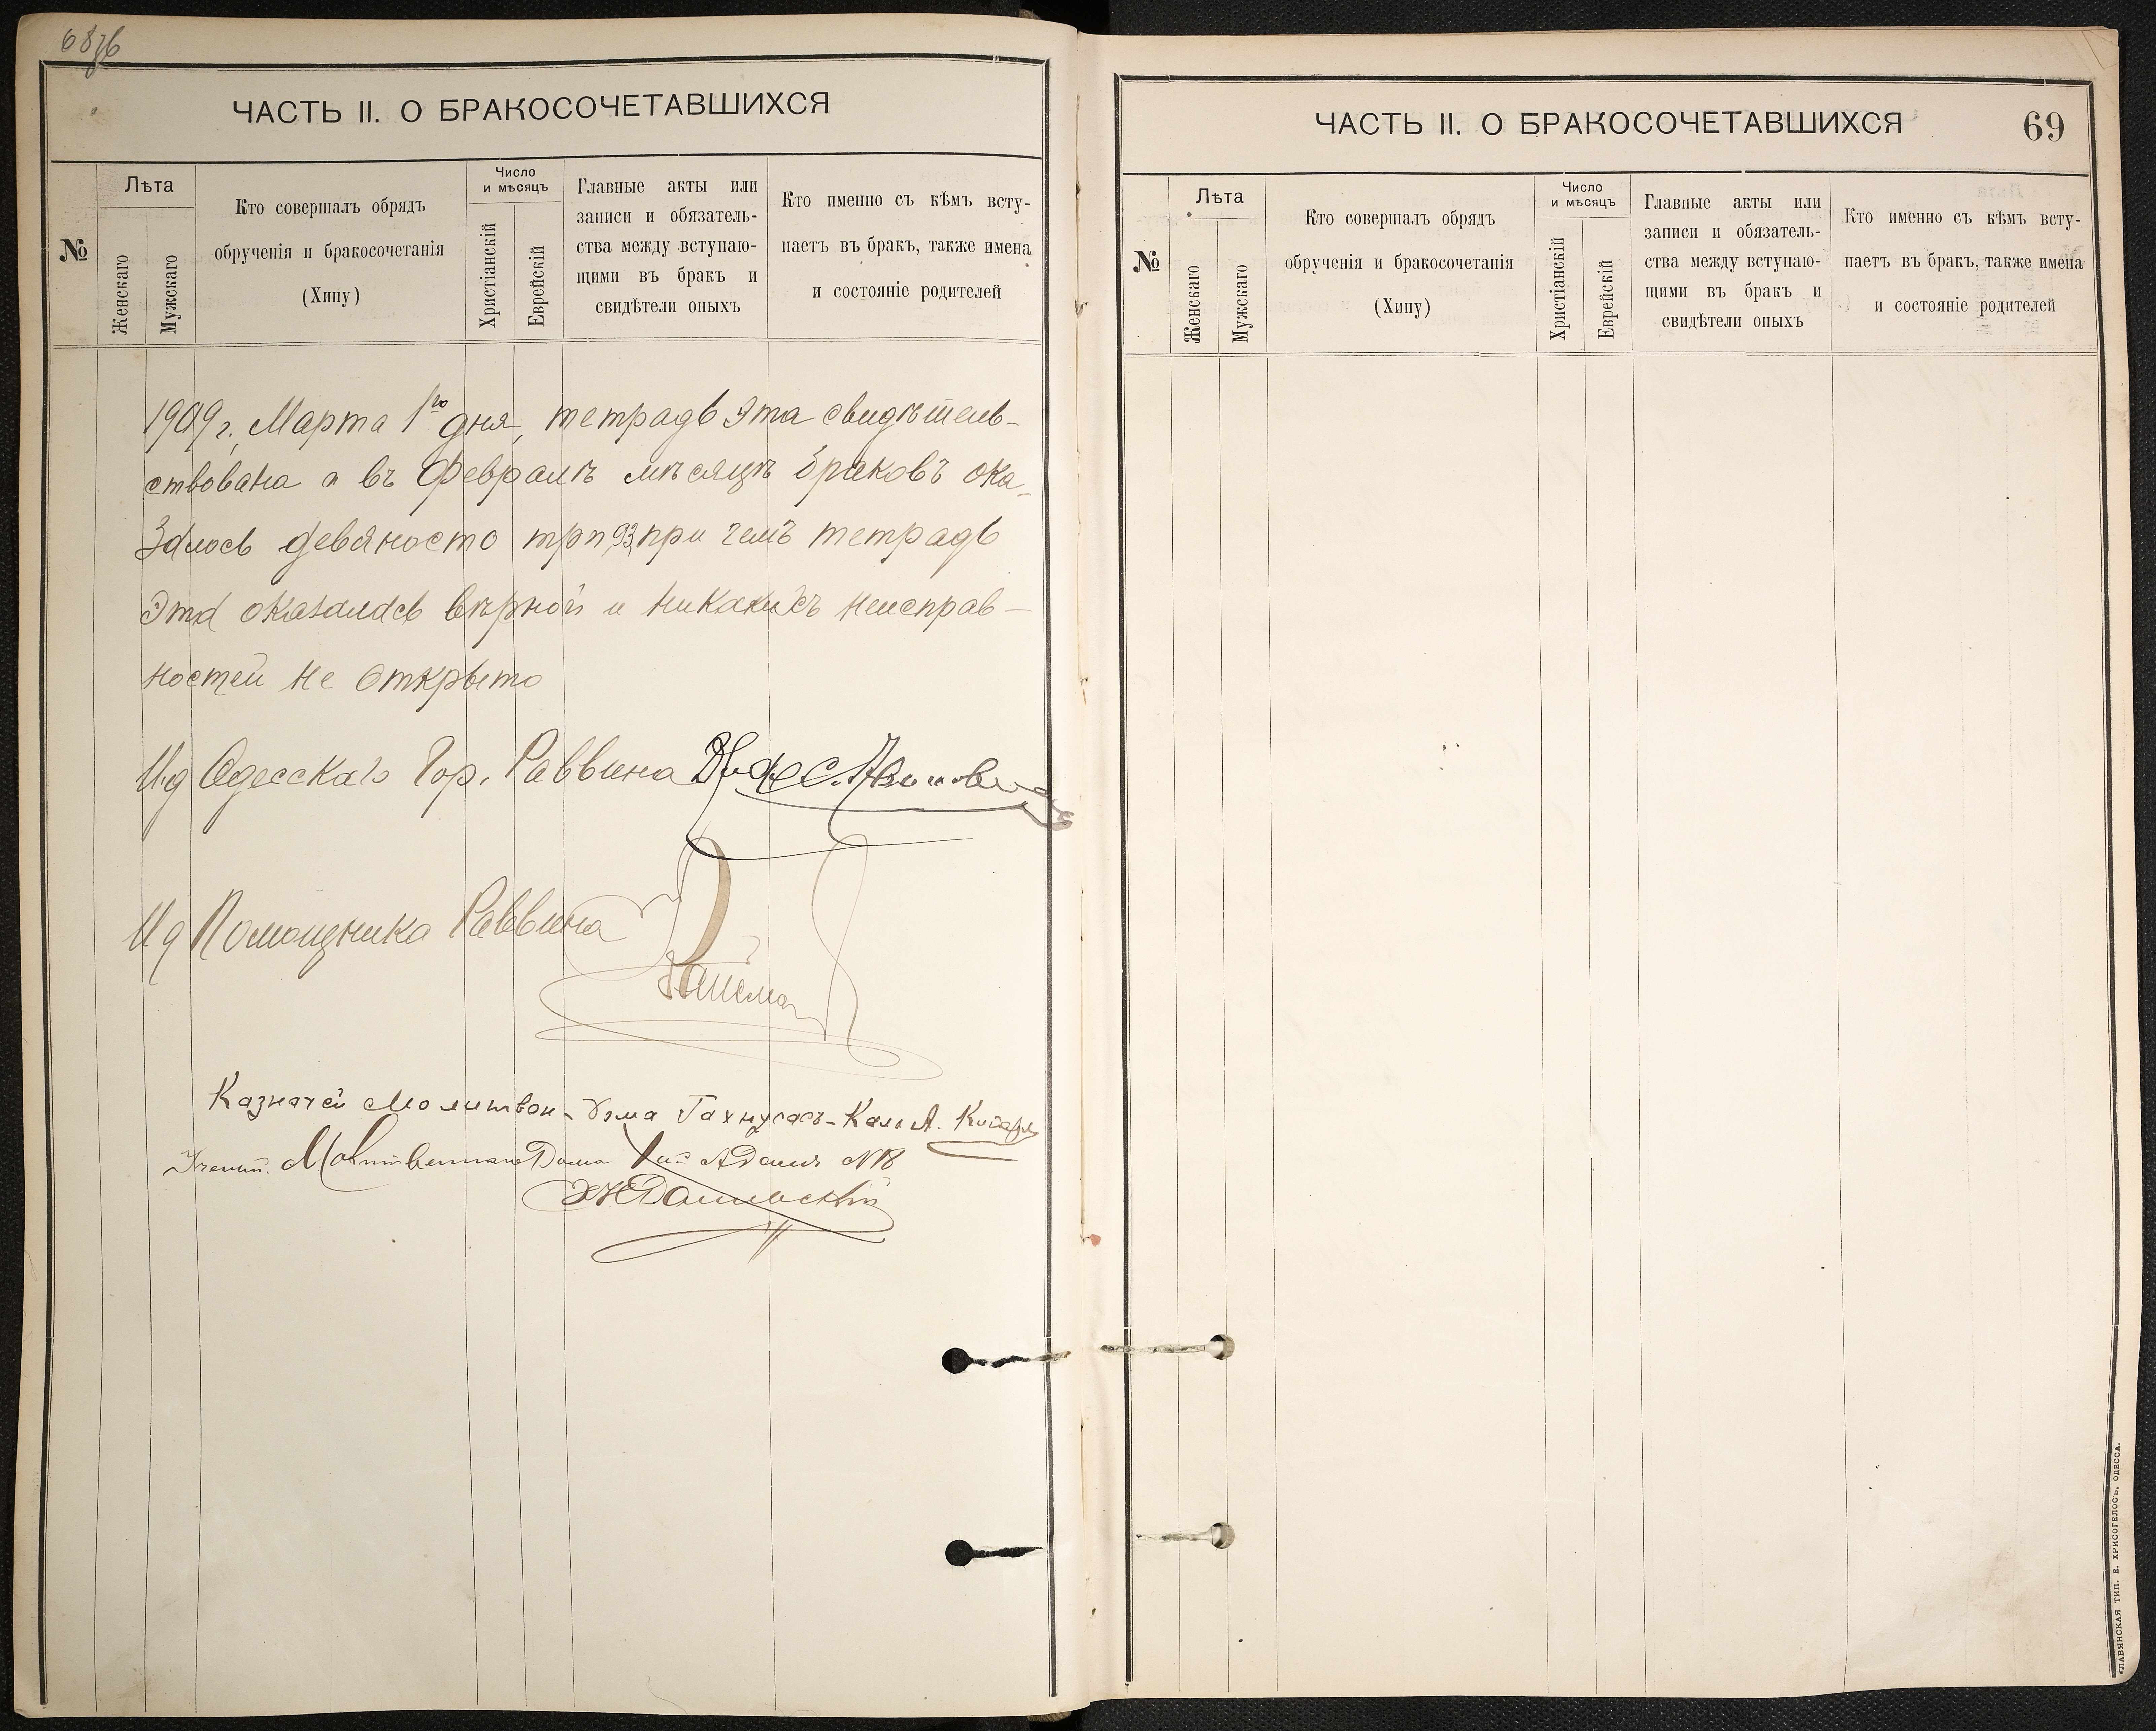 68 об
ЧАСТЬ II. О БРАКОСОЧЕТАВШИХСЯ
№
Лѣта
Женскаго
Мужскаго
Кто совершалъ обрядъ
обрученія и бракосочетанія
(Хипу)
Число
и мѣсяцъ
Христіанскій
Еврейскій
Главные акты или
записи и обязатель-
ства между вступаю-
щими въ бракъ и
свидѣтели оныхъ
Кто именно съ кѣмъ всту-
паетъ въ бракъ, также имена
и состояніе родителей
1909 г. Марта 1го дня, тетрадь эта свидѣтель-
ствована и въ Февралѣ мѣсяцѣ браковъ ока-
залось девяносто три 93, при чемъ тетрадь
эта оказалась вѣрной и никакихъ неисправ-
ностей не открыто
Ид Одесскаго Гор. Раввина
Ид Помощника Раввина
Казначей Молитвен. Дома
Молитвеннаго Дома № 18
ЧАСТЬ II. О БРАКОСОЧЕТАВШИХСЯ
69
№
Лѣта
Женскаго
Мужскаго
Кто совершалъ обрядъ
обрученія и бракосочетанія
(Хипу)
Число
и мѣсяцъ
Христіанскій
Еврейскій
Главные акты или
записи и обязатель-
ства между вступаю-
щими въ бракъ и
свидѣтели оныхъ
Кто именно съ кѣмъ всту-
паетъ въ бракъ, также имена
и состояніе родителей
СЛАВЯНСКАЯ ТИП. Е. ХРИСОГЕЛОСЪ, ОДЕССА.